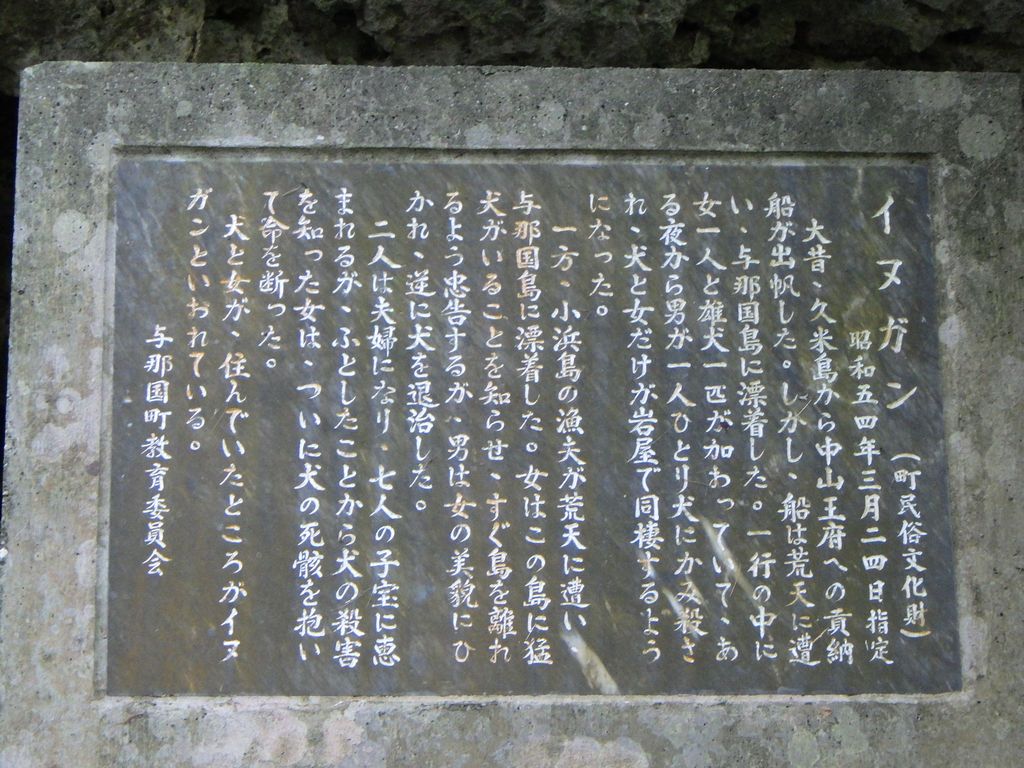 イヌガン（町民俗文化財）
昭和五四年三月二四日指定
大昔、久米島から中山王府への貢納
船が出帆した。しかし、船は荒天に遭
い、与那国島に漂着した。一行の中に
女一人と雄犬一匹が加わっていて、あ
る夜から男が一人ひとり犬にかみ殺さ
れ、犬と女だけが岩屋で同棲するよう
になった。
一方、小浜島の漁夫が荒天に遭い
与那国島に漂着した。女はこの島に猛
犬がいることを知らせ、すぐ島を離れ
るよう忠告するが、男は女の美貌にひ
かれ、逆に犬を退治した。
二人は夫婦になり、七人の子宝に恵
まれるが、ふとしたことから犬の殺害
を知った女は、ついに犬の死骸を抱い
て命を断った。
犬と女が、住んでいたところがイヌ
ガンといわれている。
与那国町教育委員会